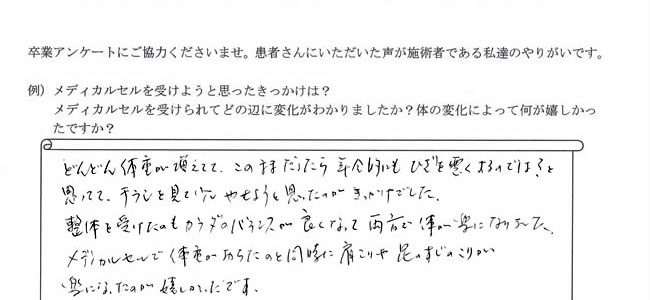 卒業アンケートにご協力くださいませ。患者さんにいただいた声が施術者である私達のやりがいです。
例）メディカルセルを受けようと思ったきっかけは？
メディカルセルを受けられてどの辺に変化がわかりましたか？体の変化によって何が嬉しかっ
たですか？
どんどん体重が増えてて、このままだったら年令的にも ひざを悪くするのでは？と
思ってて、チラシを見ていて やせようと思ったのが きっかけでした。
整体を受けたのもカラダのバランスが 良くなって 両方で 体が楽になりました。
メディカルセルで 体重がおちたのと同時に 肩こりや 足のすじのこりが
楽になったのが 嬉しかったです。